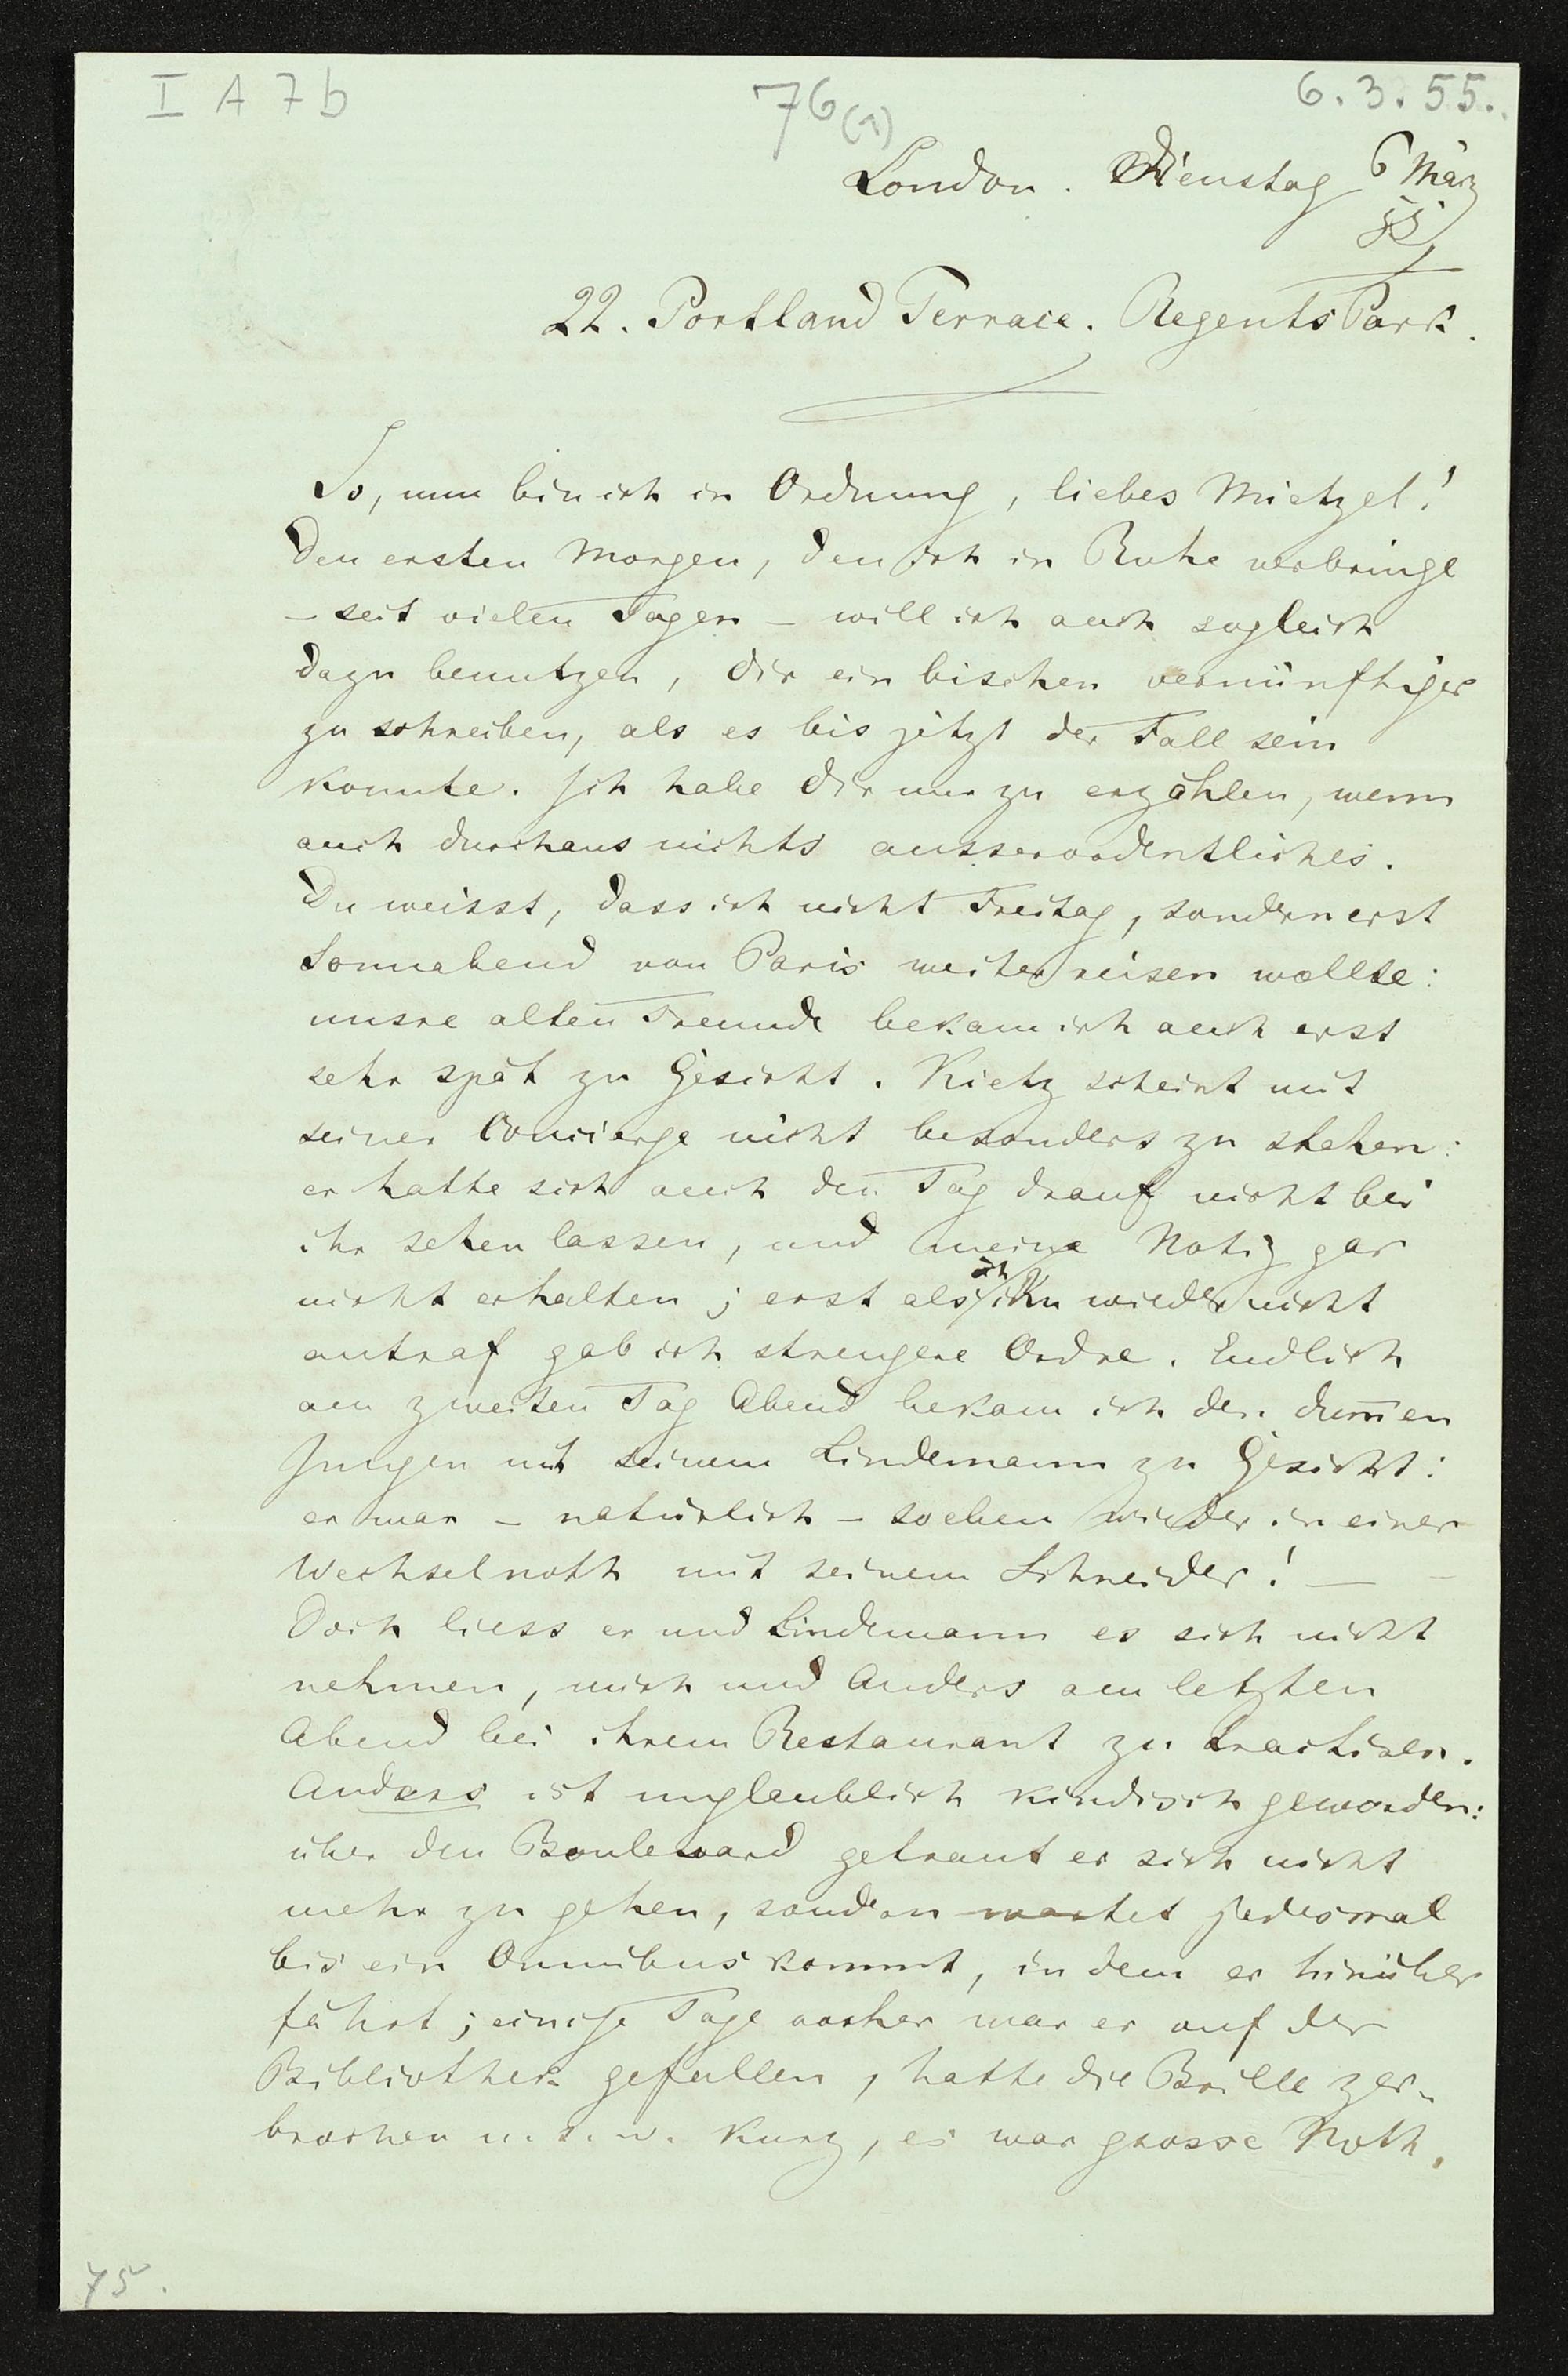 I A 7b
76 (1)
6.3.55.
London. Dienstag 6 März
55
22. Portland Terrace. Regents Park.
So, nun bin ich in Ordnung, liebes Mietzel!
Den ersten Morgen, den ich in Ruhe verbringe
– seit vielen Tagen – will ich auch sogleich
dazu benutzen, dir ein bischen vernünftiger
zu schreiben, als es bis jetzt der Fall sein
konnte. Ich habe dir nur zu erzählen, wenn
auch durchaus nichts ausserordentliches.
Du weisst, dass ich nicht Freitag, sondern erst
Sonnabend von Paris weiter reisen wollte:
unsre alten Freunde bekam ich auch erst
sehr spät zu Gesicht. Kietz scheint mit
seiner Concierge nicht besonders zu stehen:
er hatte sich auch den Tag drauf nicht bei
ihr sehen lassen, und meine Notiz gar
nicht erhalten; erst als ich ihn wieder nicht
antraf gab ich strengere Ordre. Endlich
am zweiten Tag Abend bekam ich den dum̅en
Jungen mit seinem Lindemann zu Gesicht:
er war – natürlich – soeben wieder in einer
Wechselnoth mit seinem Schneider! –
Doch liess er und Lindemann es sich nicht
nehmen, mich und Anders am letzten
Abend bei ihrem Restaurant zu tractiren.
Anders ist unglaublich kindisch geworden:
über den Boulevard getraut er sich nicht
mehr zu gehen, sondern wartet jedesmal
bis ein Omnibus kommt, in dem er hinüber
fährt; einige Tage vorher war er auf der
Bibliothek gefallen, hatte die Brille zer-
brochen u. s. w. Kurz, es war grosse Noth.
75.